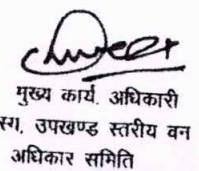 मुख्य कार्य. अधिकारी
स्ग. उपखण्ड स्तरीय वन
अधिकार समिति